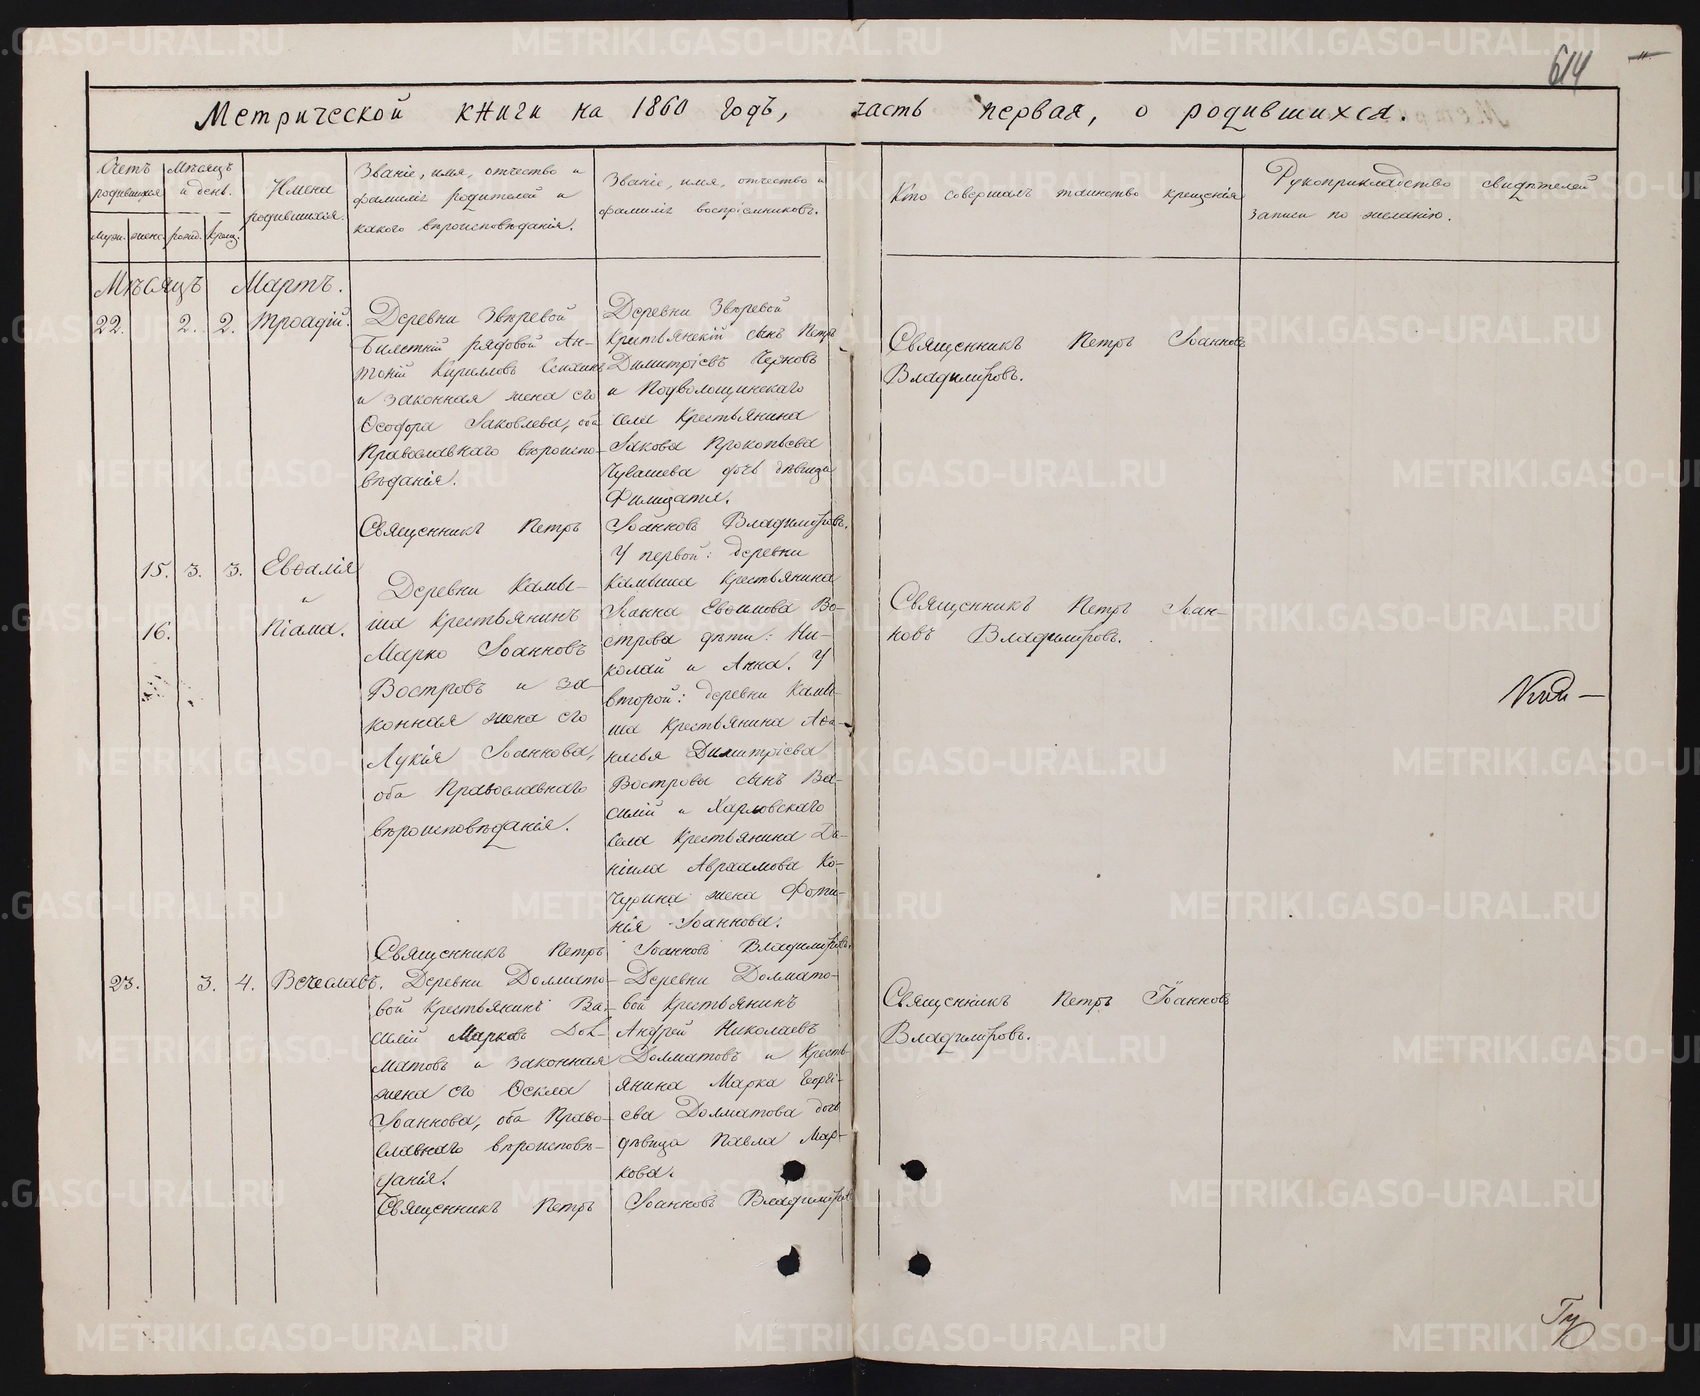 614
Метрической книги на 1860 годъ, часть первая, о родившихся.
Счетъ родившихся
муж. женс.
Мѣсяцъ и день.
рожд. крещ.
Имена родившихся.
Званіе, имя, отчество и
фамилія родителей и
какого вѣроисповѣданія.
Званіе, имя, отчество и
фамилія воспріемниковъ.
Кто совершалъ таинство крещенія
Рукоприкладство свидѣтелей
записи по желанію.
Мѣсяцъ Мартъ.
22. 2. 2. Троадій.
Деревни Звѣревой
Билетный рядовой Ан-
тоній Кирилловъ
и законная жена его
Ѳеодора Іаковлева, оба
Православнаго вѣроиспо-
вѣданія.
Деревни Звѣревой
Крестьянскій сынъ Петръ
Димитріевъ Черновъ
и Подволошинскаго
села Крестьянина
Іакова Прокопьева
Чувашева дочь дѣвица
Филицата.
Священникъ Петръ Іоанновъ
Владиміровъ.
Священникъ Петръ Іоанновъ Владиміровъ.
15. 3. 3. Евѳалія
и
16. Піама.
Деревни Камы-
ша Крестьянинъ
Марко Іоанновъ
Востровъ и за-
конная жена его
Лукія Іоаннова,
оба Православнаго
вѣроисповѣданія.
У первой: деревни
Камыша Крестьянина
Іоанна Евѳимова Во-
строва дѣти: Ни-
колай и Анна. У
второй: деревни Камы-
ша Крестьянина Аѳа-
насья Димитріева
Вострова сынъ Ва-
силій и Харловскаго
села Крестьянина Да-
ніила Авраамова Ко-
чурина жена Фоти-
нія Іоаннова.
Священникъ Петръ Іоан-
новъ Владиміровъ.
Священникъ Петръ Іоанновъ Владиміровъ.
23. 3. 4. Вечеславъ.
Деревни Долмато-
вой Крестьянинъ Ва-
силій Марковъ Дол-
матовъ и законная
жена его Ѳекла
Іоаннова, оба Право-
славнаго вѣроисповѣ-
данія.
Деревни Долмато-
вой Крестьянинъ
Андрей Николаевъ
Долматовъ и Кресть-
янина Марка Георгі-
ева Долматова дочь
дѣвица Павла Мар-
кова.
Священникъ Петръ Іоанновъ
Владиміровъ.
Священникъ Петръ Іоанновъ Владиміровъ
METRIKI.GASO-URAL.RU